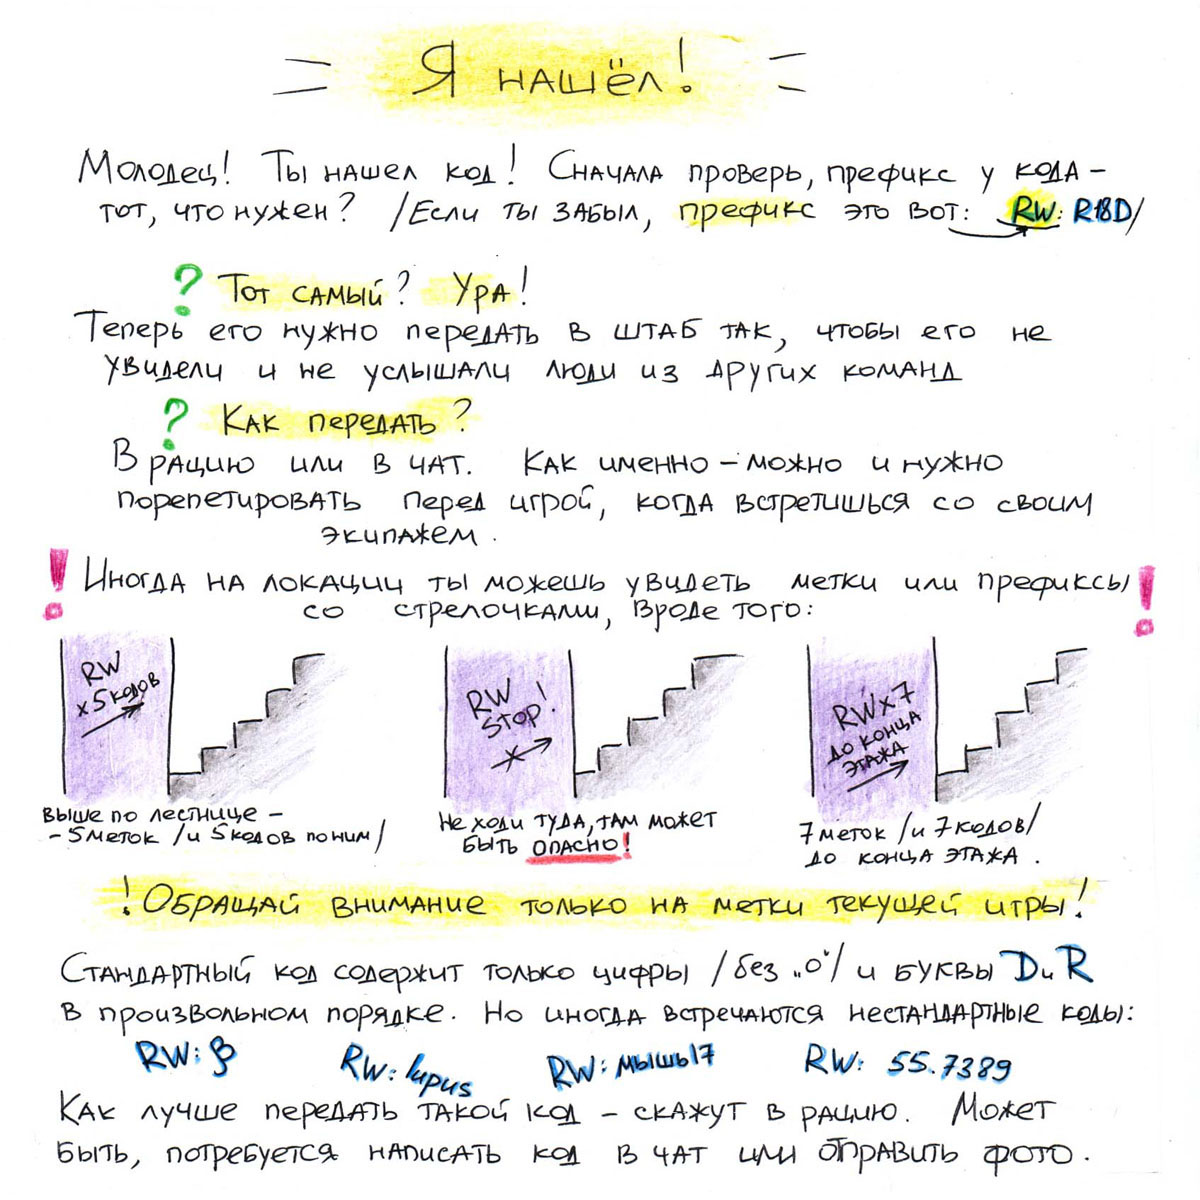 Я нашёл!
Молодец! Ты нашел код! Сначала проверь, префикс у кода –
тот, что нужен? /Если ты забыл, префикс это вот: RW: R18D/
? Тот самый? Ура!
Теперь его нужно передать в штаб так, чтобы его не
увидели и не услышали люди из других команд
? Как передать?
В рацию или в чат. Как именно – можно и нужно
порепетировать перед игрой, когда встретишься со своим
экипажем.
! Иногда на локации ты можешь увидеть метки или префиксы !
со стрелочками, вроде того:
RW
x5кодов
выше по лестнице –
– 5 меток /и 5 кодов по ним/
RW
STOP!
Не ходи туда, там может
быть опасно!
RWx7
до конца
этажа
7 меток /и 7 кодов/
до конца этажа.
! Обращай внимание только на метки текущей игры!
Стандартный код содержит только цифры /без „0“/ и буквы D и R
в произвольном порядке. Но иногда встречаются нестандартные коды:
RW: β RW: lupus RW: мышь17 RW: 55.7389
Как лучше передать такой код – скажут в рацию. Может
быть, потребуется написать код в чат или отправить фото.